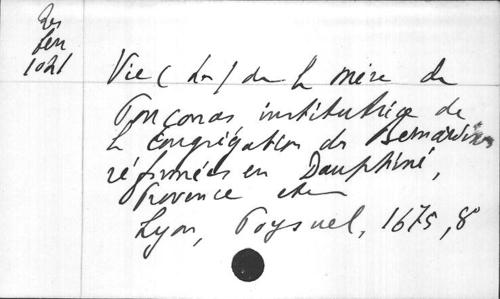 Res
fen
1021
Vie (La) de la mère de
Ponçonas institutrice de
la congrégation des Bernardines
réformées en Dauphiné,
Provence etc
Lyon, Poysuel, 1675, 8°